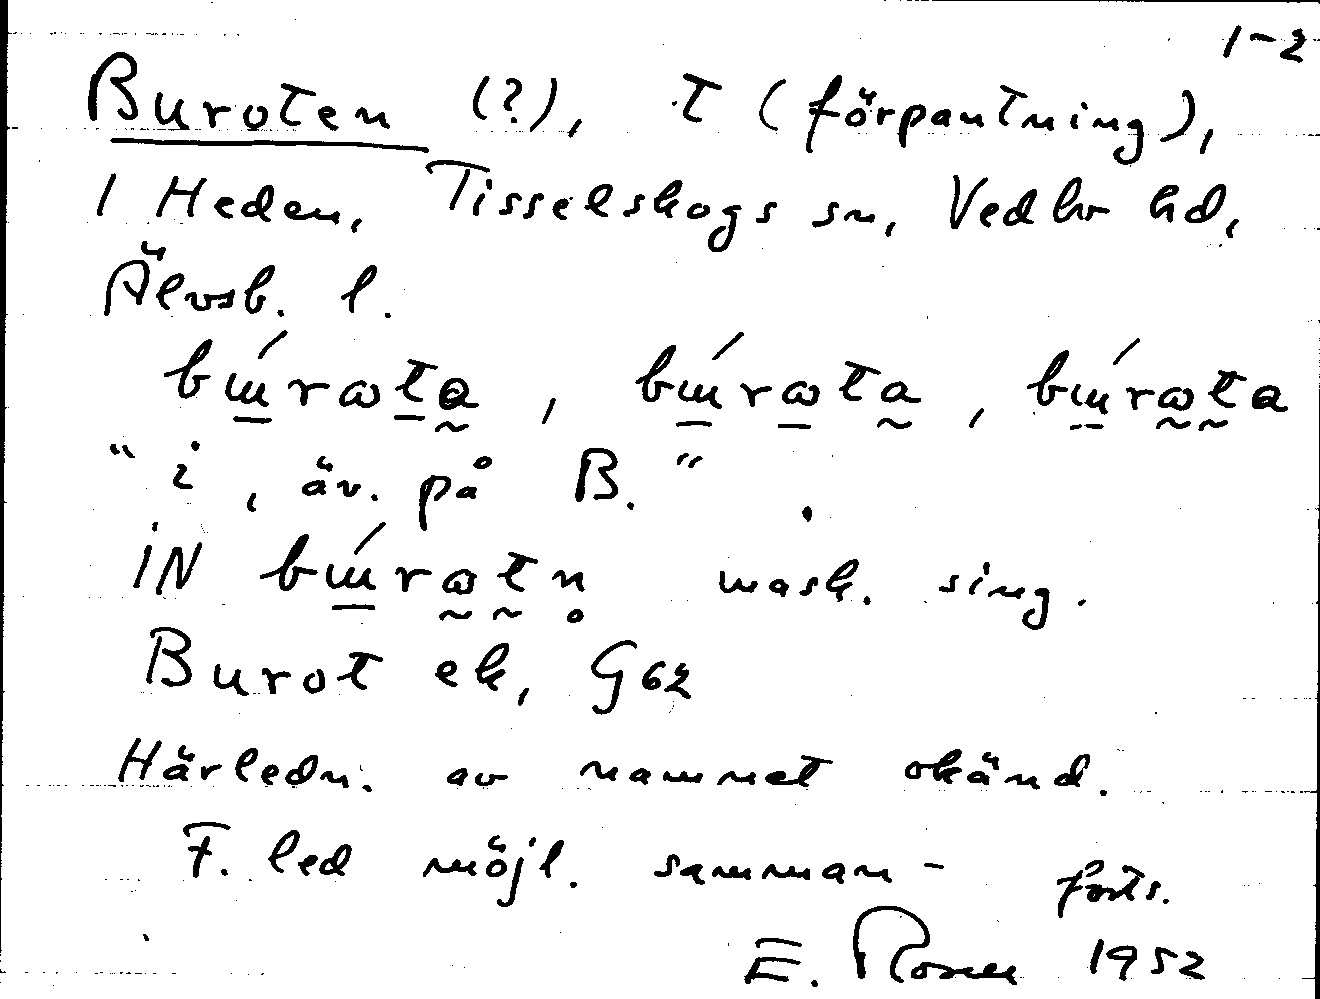 1-2
Buroten (?), t (förpantning),
1 Heden, Tisselskogs sn, Vedbo hd,
Älvsb. l.
bɯ́rωta, bɯ́rωta, bɯ́rωta
"i, äv. på B.".
iN bɯ́rωtn̥ mask. sing.
Burot ek, G62
Härledn. av namnet okänd.
F. led möjl. samman- forts.
E. 1952